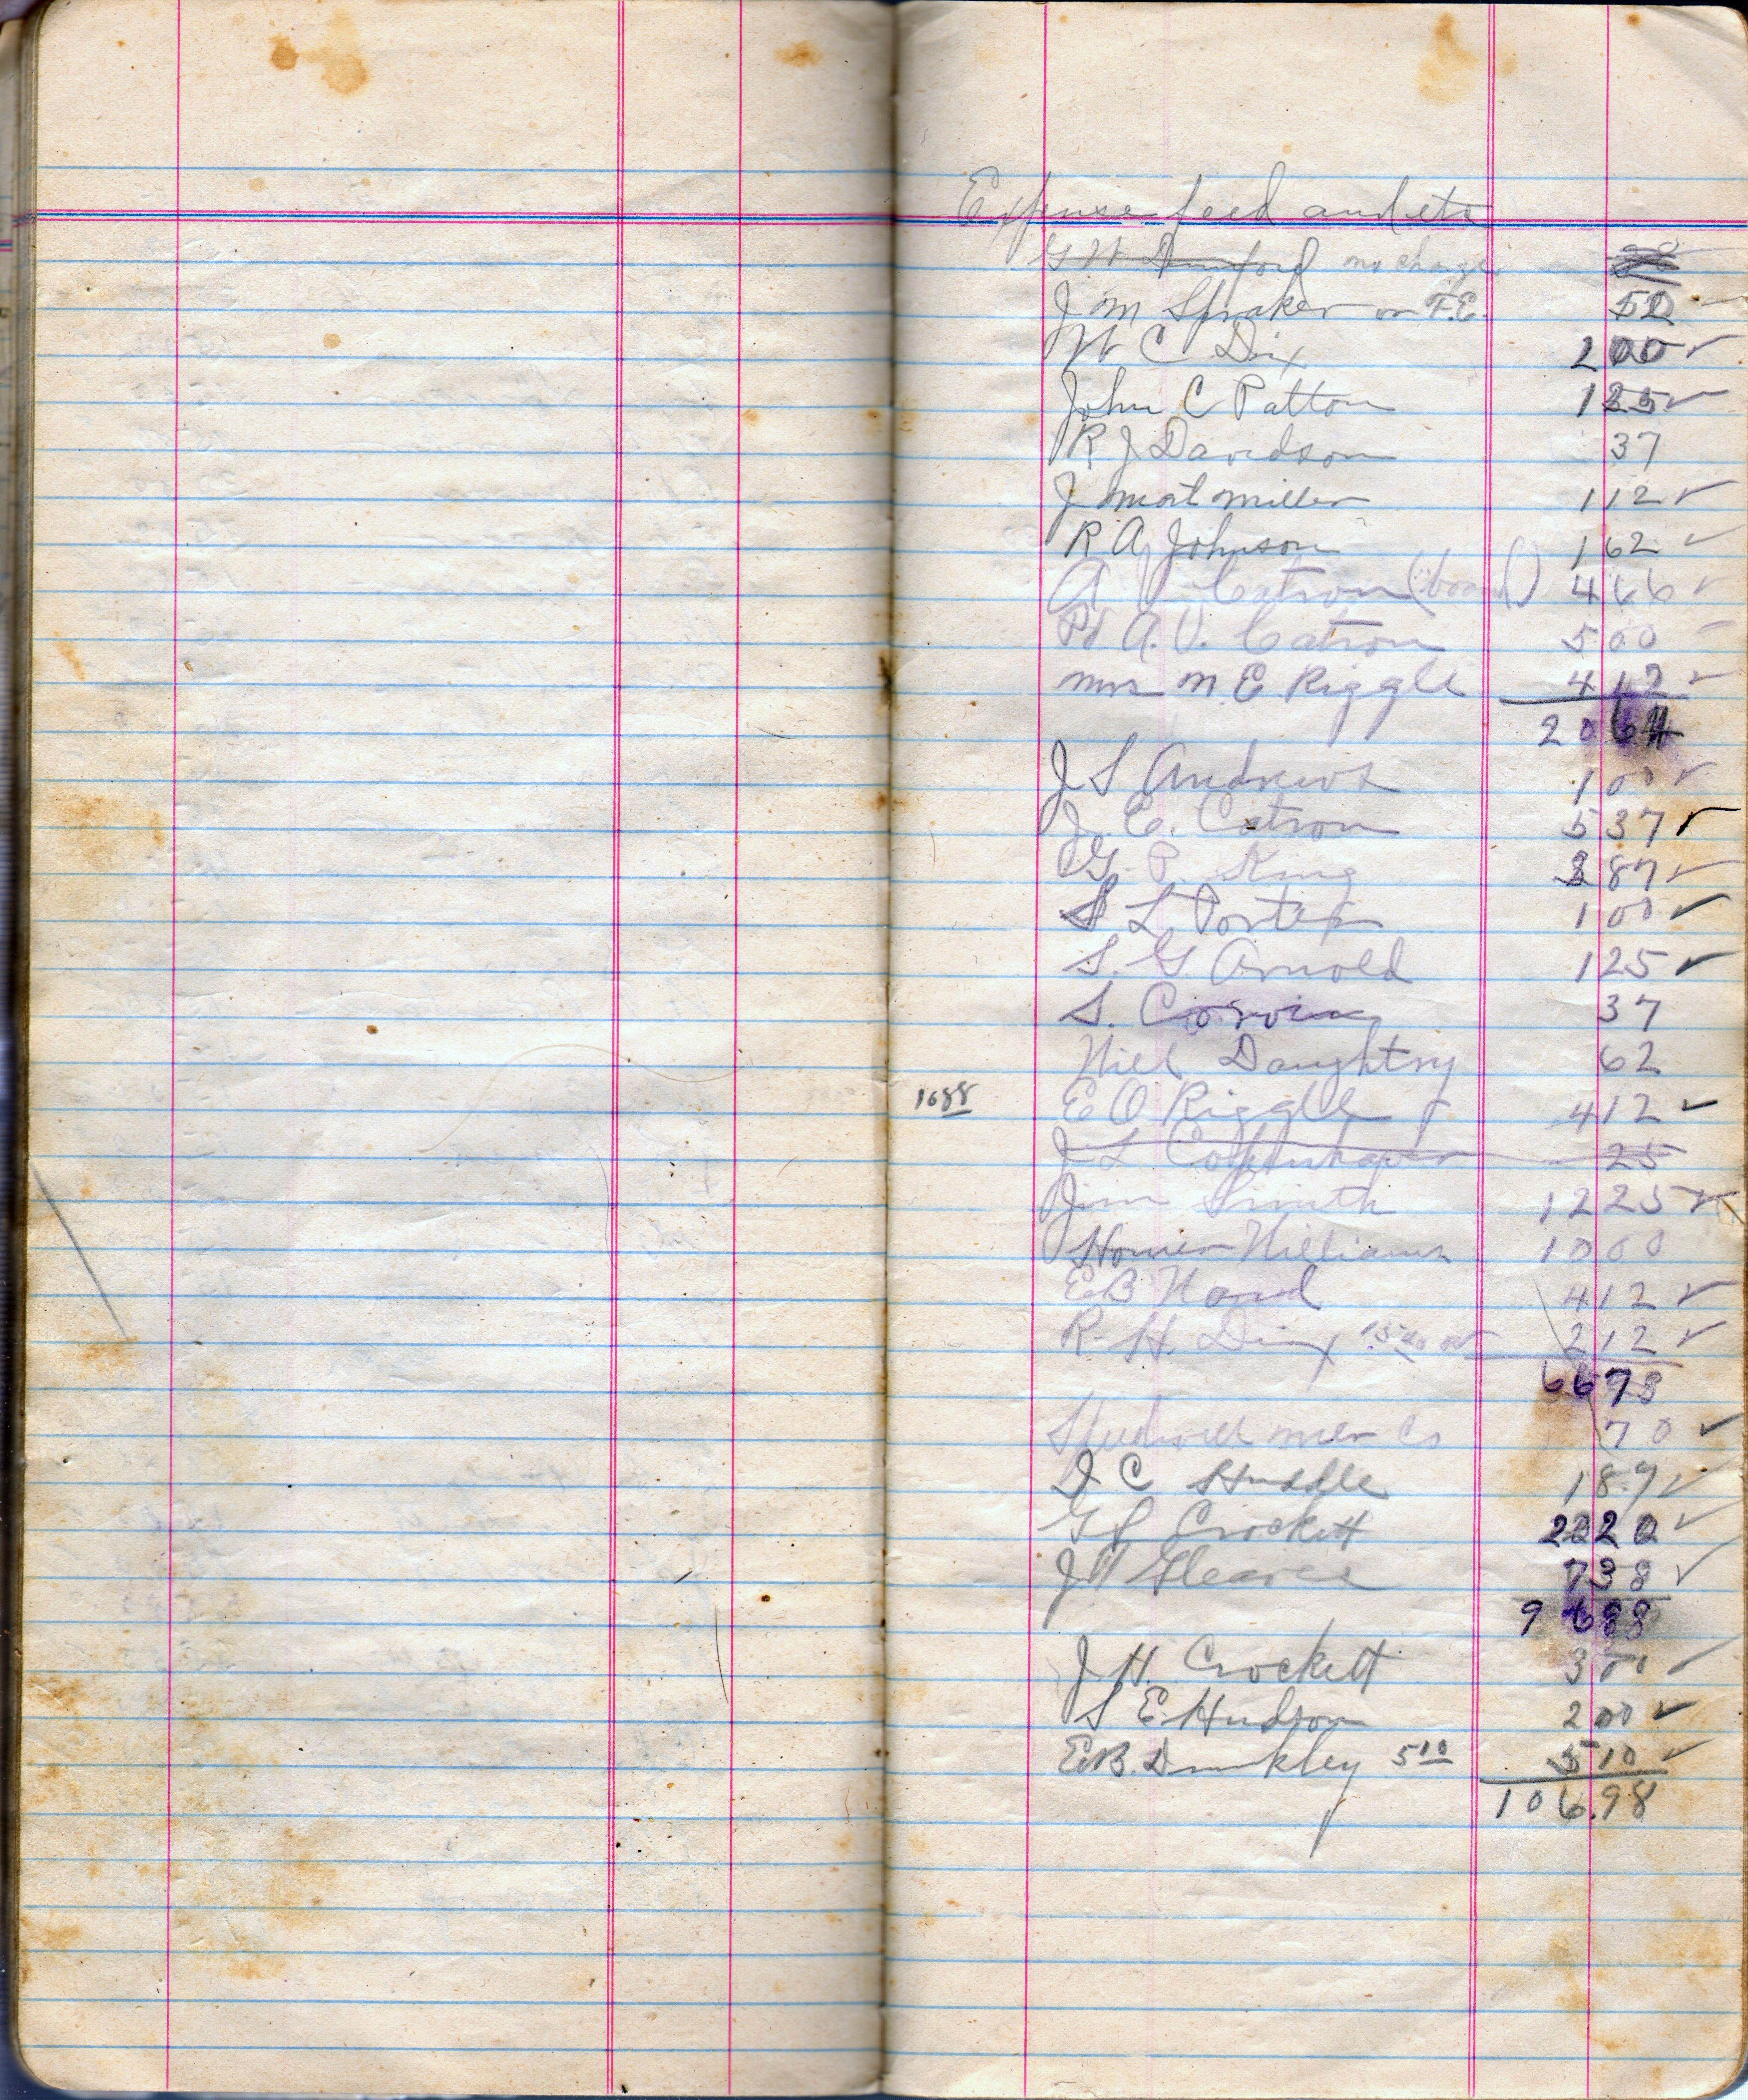 Expense feed and etc
G W Dunford no charge
J M Spraker on F.E. 50
W C Dix 2 00 ✓
John C Patton 1 25 ✓
R J Davidson 37
J Mort Miller 1 12 ✓
R A Johnson 1 62 ✓
A V Catron (board) 4 66 ✓
Pd A. V. Catron 5 00
Mrs M. E Riggle 4 12 ✓
20 64
J S Andrews 1 00 ✓
J. E. Catron 5 37 ✓
G. P. King 3 87 ✓
S L Porter 1 00 ✓
S. G. Arnold 1 25 ✓
S. Corvin 37
Will Daughtry 62
1688 E O Riggle 4 12 ✓
J L Copenhaver 25
Jim Smith 12 25 ✓
Homer Williams 10 00
E B Ward 4 12 ✓
R. H. Dix 15 40 2 12 ✓
66 73
Speedwell Mer Co 70 ✓
J C Huddle 1 87 ✓
G S Crockett 20 20 ✓
J W Gleaves 7 38 ✓
96 88
J. H. Crockett 3 00 ✓
S E Hudson 2 00 ✓
E.B. Dunkley 5 10 5 10 ✓
106.98